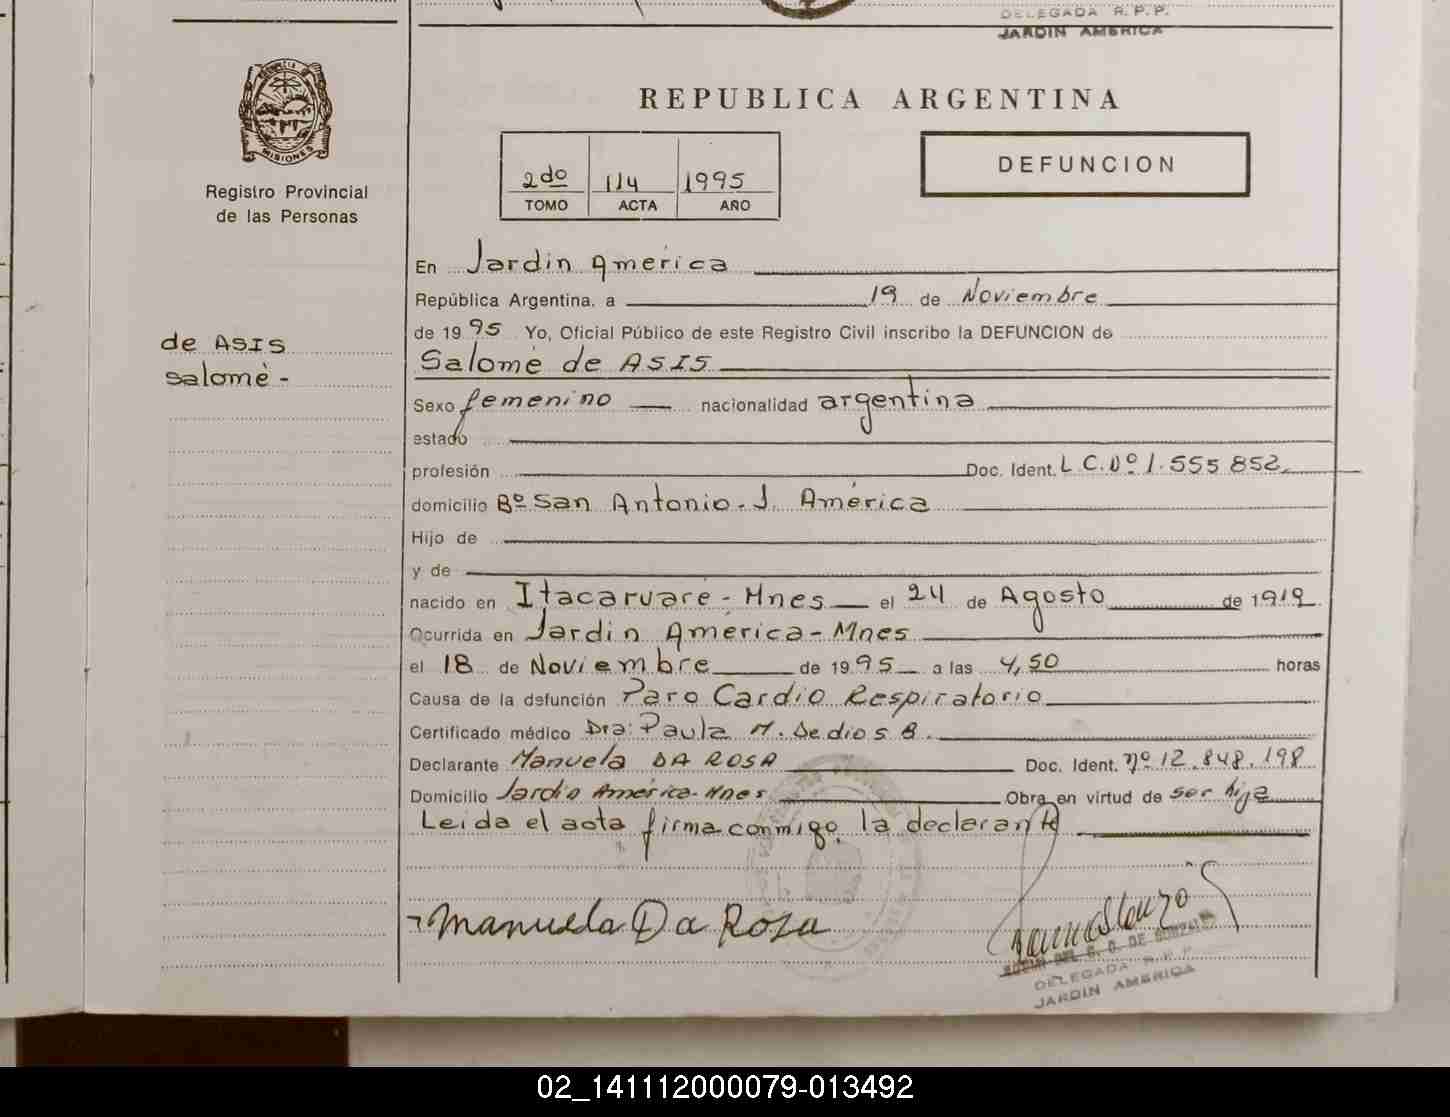 DELEGADA R. P. P.
JARDIN AMERICA
MISIONES
Registro Provincial
de las Personas
REPUBLICA ARGENTINA
2do 114 1995
TOMO ACTA AÑO
DEFUNCION
de ASIS
Salomè -
En Jardin América
República Argentina, a 19 de Noviembre
de 1995 Yo, Oficial Público de este Registro Civil inscribo la DEFUNCION de
Salomé de ASIS
Sexo femenino nacionalidad argentina
estado
profesión Doc. Ident. L.C.Nº 1.555 852
domicilio Bº San Antonio - J. América
Hijo de
y de
nacido en Itacaruaré - Mnes el 24 de Agosto de 1919
Ocurrida en Jardin América - Mnes
el 18 de Noviembre de 1995 a las 4,50 horas
Causa de la defunción Paro Cardio Respiratorio
Certificado médico Dra: Paula M. Dedios B.
Declarante Manuela DA ROSA Doc. Ident. nº 12.848.198
Domicilio Jardin América - Mnes Obra en virtud de ser hija
Leida el acta firma conmigo la declarante
Manuela Da Rosa
DELEGADA R. P. P.
JARDIN AMERICA
02_141112000079-013492